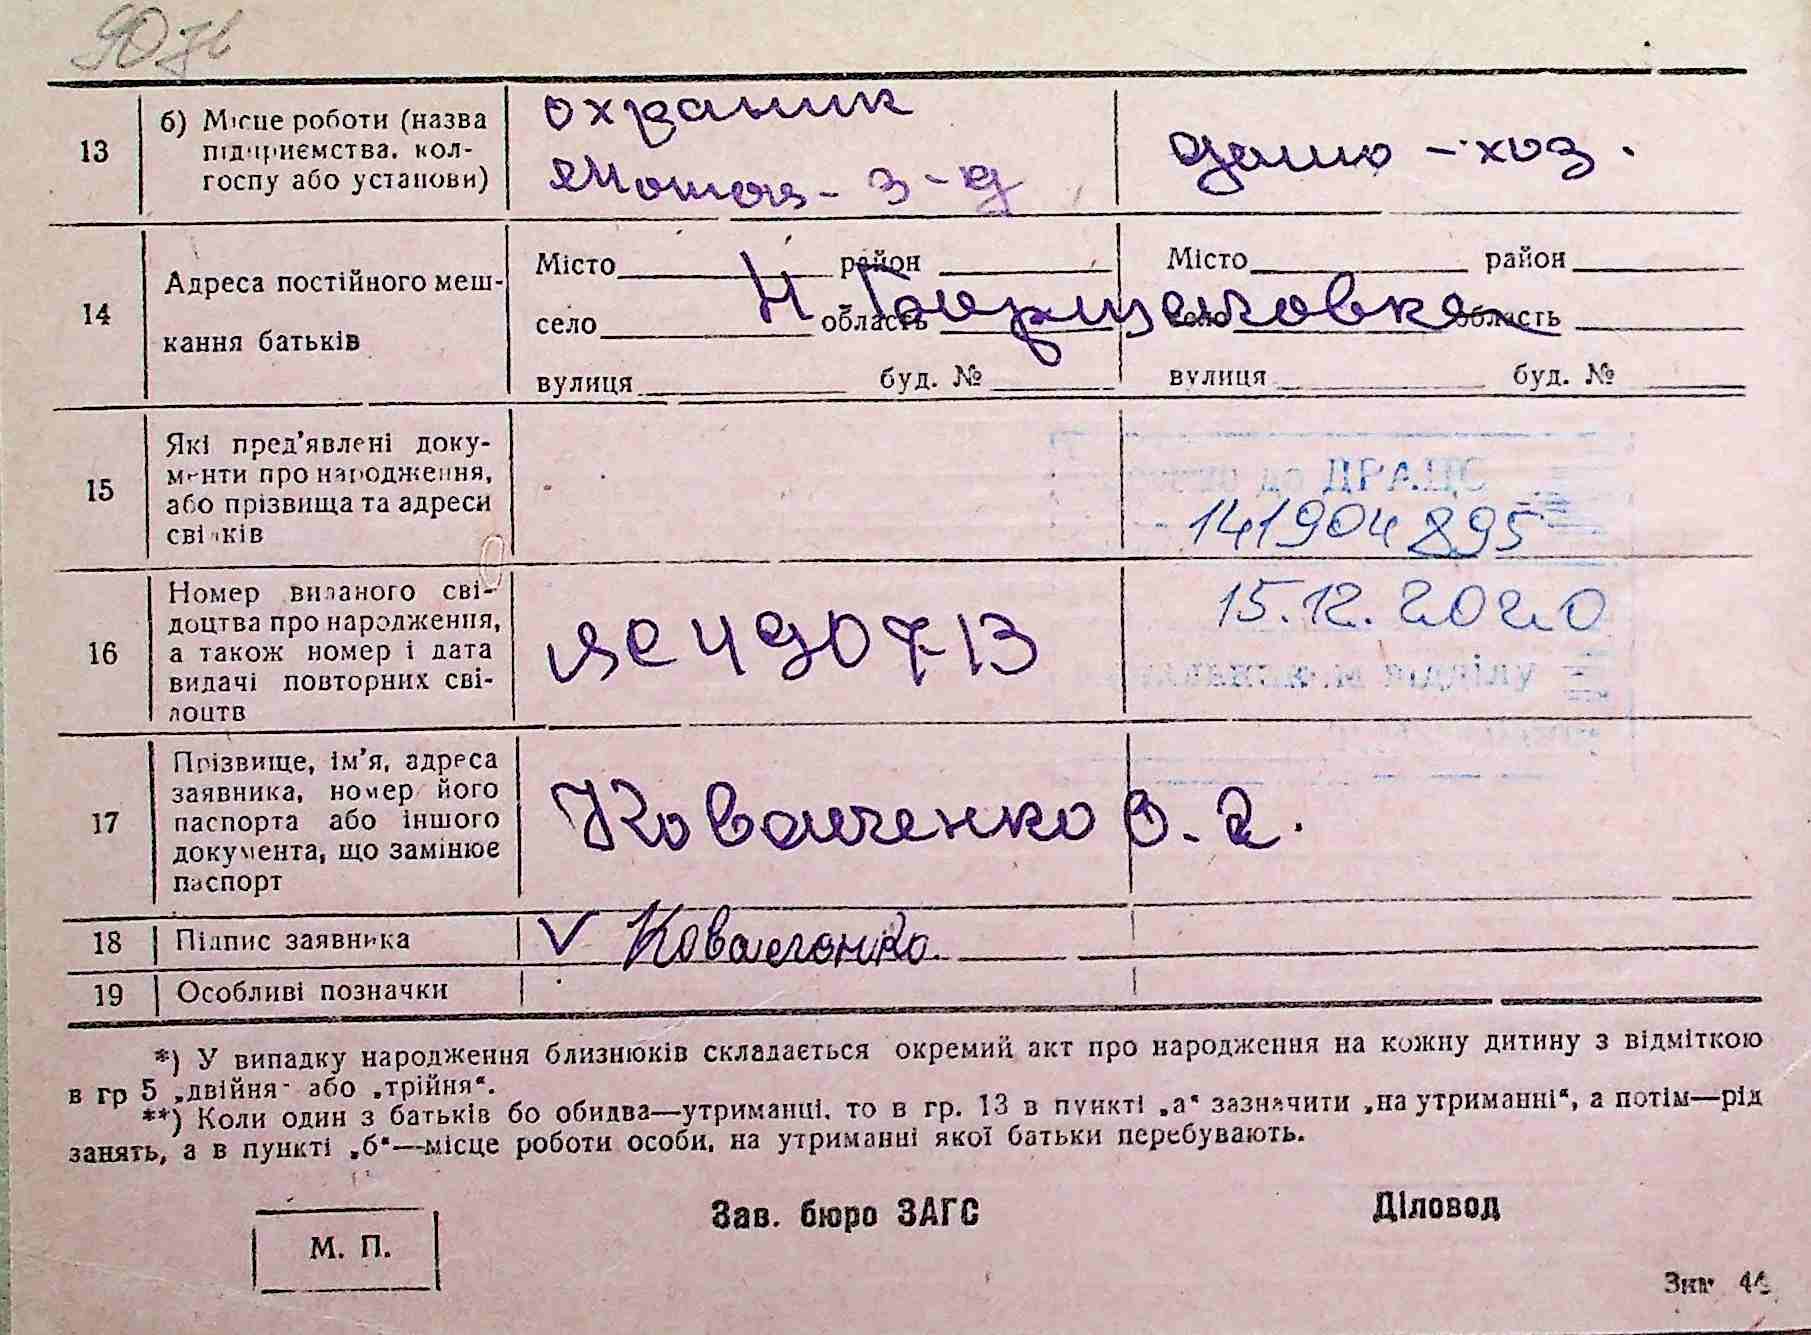 13
б) Місце роботи (назва
підприємства, кол-
госпу або установи)
охраник
з-д
домо-хоз.
14
Адреса постійного меш-
кання батьків
Місто район
село область
вулиця буд. №
Місто район
село область
вулиця буд. №
Н Борщаговка
15
Які пред'явлені доку-
менти про народження,
або прізвища та адреси
свідків
до ДРАЦС
141904895
15.12.2020
відділу
16
Номер виданого сві-
доцтва про народження,
а також номер і дата
видачі повторних сві-
доцтв
ЯС 490713
17
Прізвище, ім'я, адреса
заявника, номер його
паспорта або іншого
документа, що замінює
паспорт
Коваленко
18
Підпис заявника
V Коваленко
19
Особливі позначки
*) У випадку народження близнюків складається окремий акт про народження на кожну дитину з відміткою
в гр 5 „двійня" або „трійня".
**) Коли один з батьків бо обидва—утриманці, то в гр. 13 в пункті „а" зазначити „на утриманні", а потім—рід
занять, а в пункті „б"—місце роботи особи, на утриманні якої батьки перебувають.
Зав. бюро ЗАГС
Діловод
М. П.